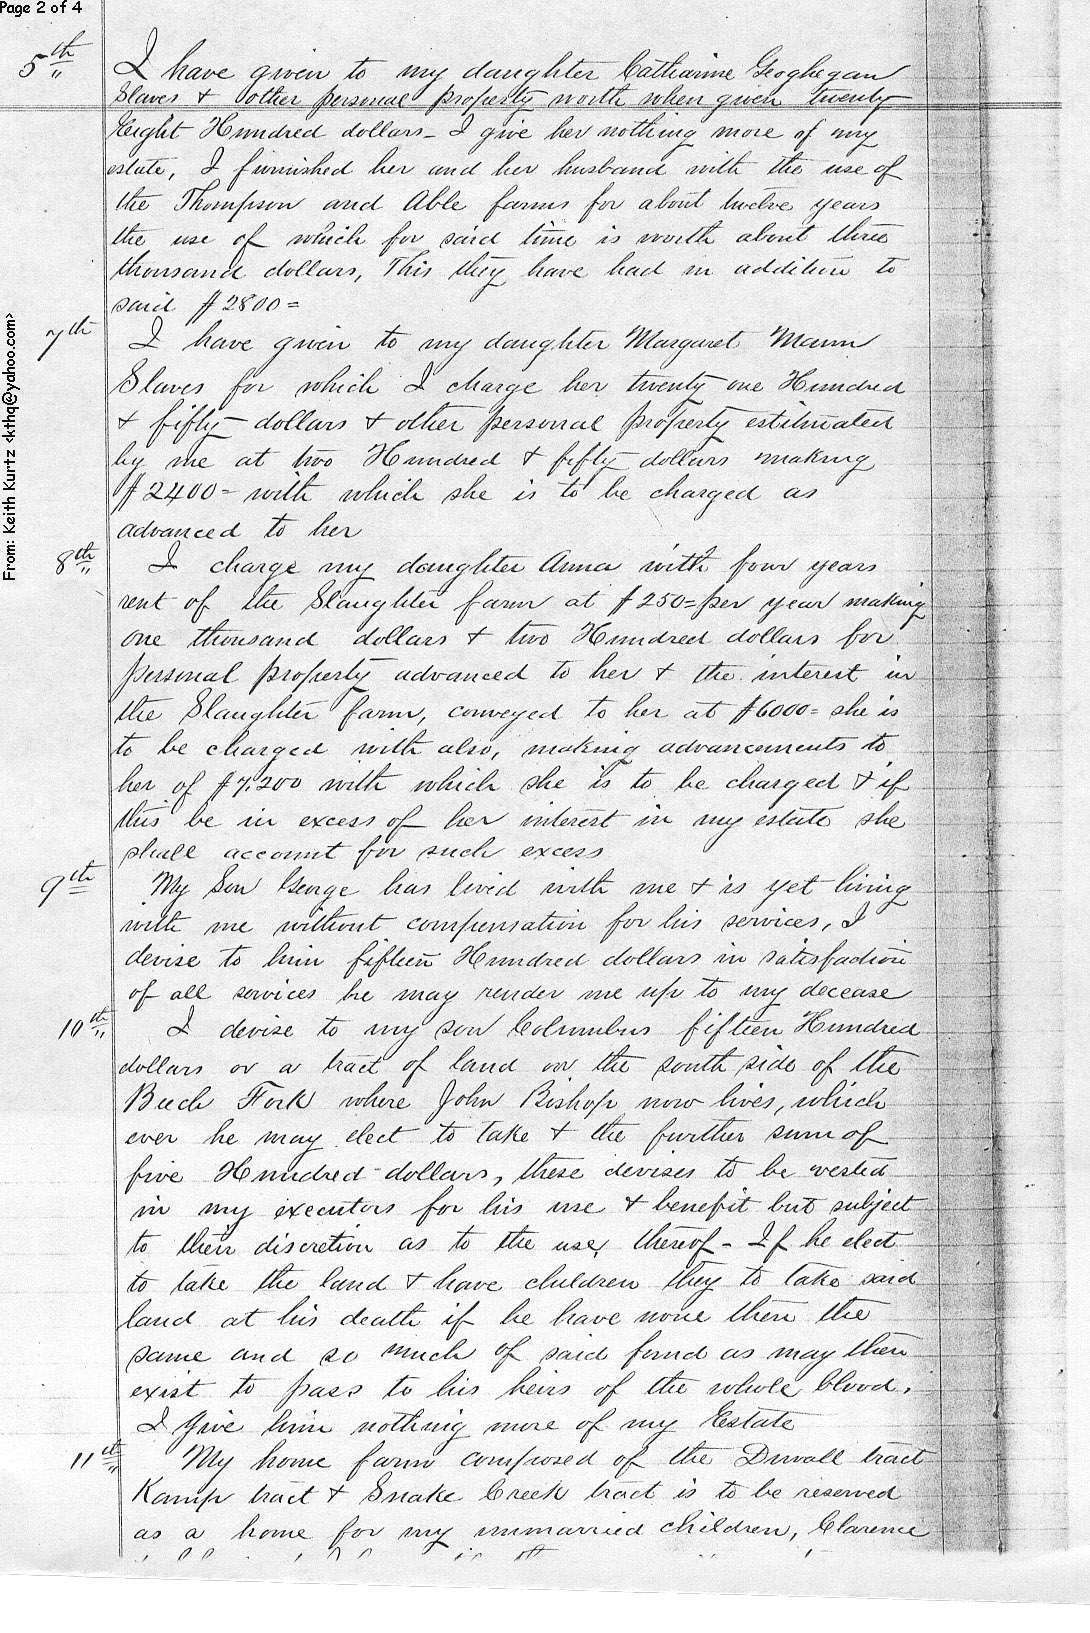 Page 2 of 4
From: Keith Kurtz <kthq@yahoo.com>
5th I have given to my daughter Catharine Geoghegan
Slaves & other personal property worth when given twenty
Eeight Hundred dollars - I give her nothing more of my
estate, I furnished her and her husband with the use of
the Thompson and Able farms for about twelve years
the use of which for said time is worth about three
thousand dollars, This they have had in addition to
said $2800=
7th I have given to my daughter Margaret Mann
Slaves for which I charge her twenty one Hundred
& fifty dollars & other personal property estimated
by me at two Hundred & fifty dollars making
$2400= with which she is to be charged as
advanced to her
8th I charge my daughter Anna with four years
rent of the Slaughter farm at $250= per year making
one thousand dollars & two Hundred dollars for
personal property advanced to her & the interest in
the Slaughter farm, conveyed to her at $6000= she is
to be charged with also, making advancements to
her of $7,200 with which she is to be charged & if
this be in excess of her interest in my estate she
shall account for such excess
9th My Son George has lived with me & is yet living
with me without compensation for his services, I
devise to him fifteen Hundred dollars in satisfaction
of all services he may render me up to my decease
10th I devise to my son Columbus fifteen Hundred
dollars or a tract of land on the south side of the
Beech Fork where John Bishop now lives, which
ever he may elect to take & the further sum of
five Hundred dollars, these devises to be vested
in my executors for his use & benefit but subject
to their discretion as to the use, thereof - If he elect
to take the land & have children they to take said
land at his death if he have none then the
same and so much of said fund as may then
exist to pass to his heirs of the whole blood.
I give him nothing more of my Estate
11th My home farm composed of the Duvall tract
Kamp tract & Snake Creek tract is to be reserved
as a home for my unmarried children, Clarence